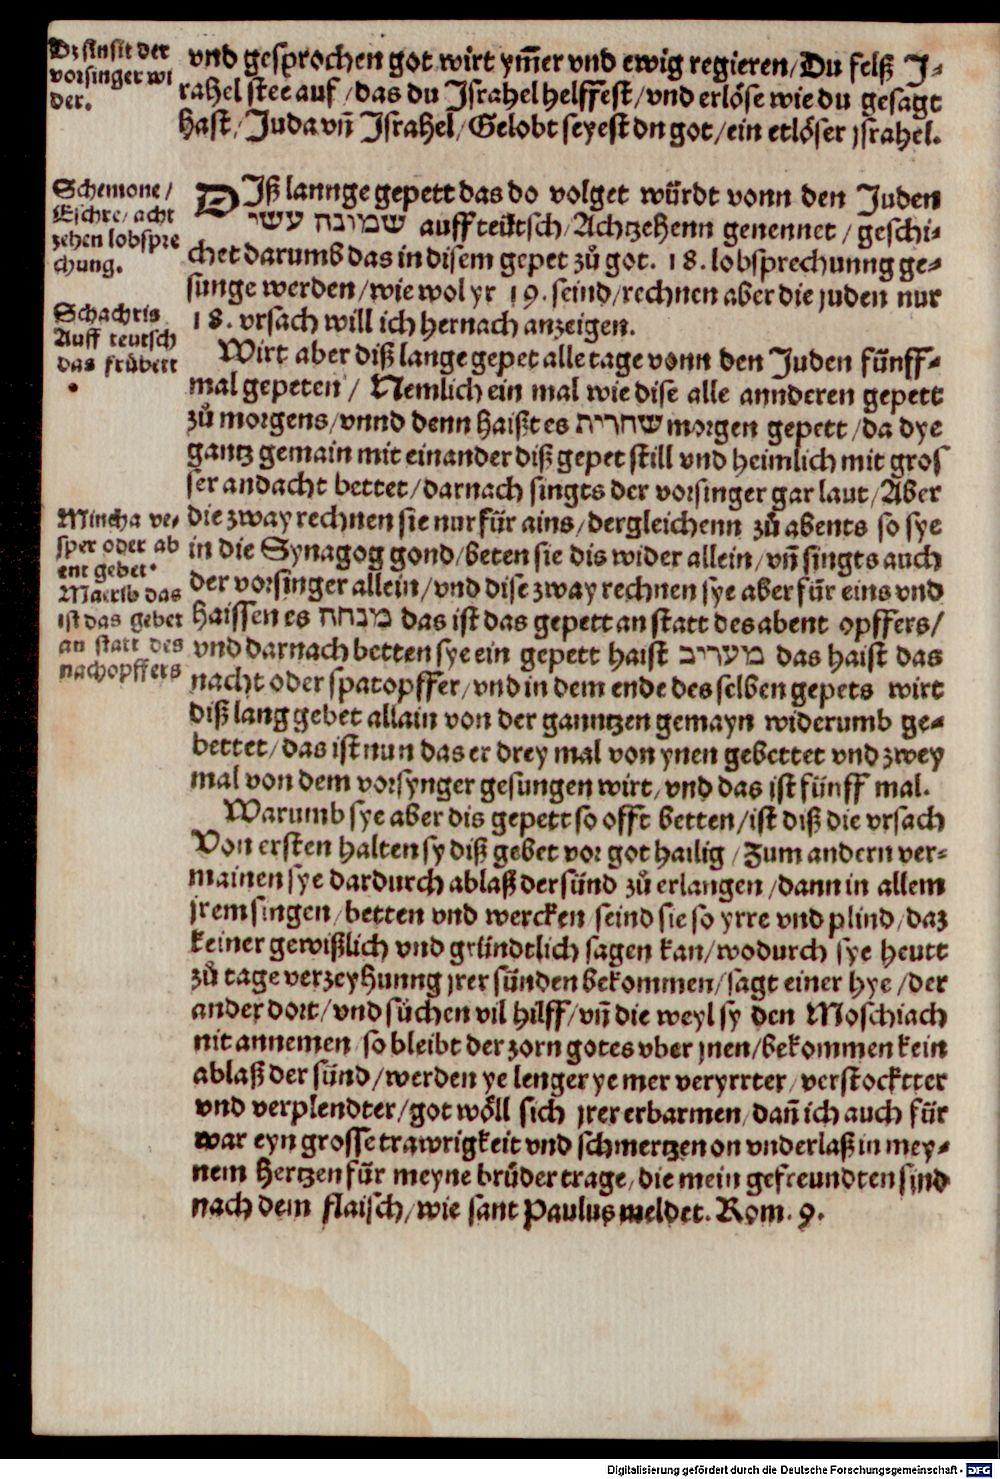 Dz sinſit der
vorſinger wi
der.
vnd geſprochen got wirt ym̃er vnd ewig regieren/Du felß J⸗
rahel stee auf/das du Jſrahel helffeſt/vnd erlöſe wie du geſagt
haſt/Juda vñ Jſrahel/Gelobt ſeyeſt dn got/ein etlöſer jſrahel.
Schemone/
Eſchre/acht
zehen lobſpre
chung.
DJß lannge gepett das do volget würdt vonn den Juden
שמונה עשרי auff teütſch/Achtzehenn genennet/geſchi⸗
chet darumb das in diſem gepet zů got. 18. lobſprechunng ge⸗
ſunge werden/wie wol yr 19. ſeind/rechnen aber die juden nur
18. vrſach will ich hernach anzeigen.
Schachris
Auff teutſch
das frübett
Wirt aber diß lange gepet alle tage vonn den Juden fünff⸗
mal gepeten/Nemlich ein mal wie diſe alle annderen gepett
zů morgens/vnnd denn haißt es שחרית morgen gepett/da dye
gantz gemain mit einander diß gepet ſtill vnd heimlich mit groſ
ſer andacht bettet/darnach ſingts der vorſinger gar laut/Aber
die zway rechnen ſie nur für ains/dergleichenn zů abents ſo ſye
in die Synagog gond/beten ſie dis wider allein/vñ ſingts auch
der vorſinger allein/vnd diſe zway rechnen ſye aber für eins vnd
haiſſen es מנחה das iſt das gepett an ſtatt des abent opffers/
vnd darnach betten ſye ein gepett haiſt מעריב das haiſt das
nacht oder ſpatopffer/vnd in dem ende des ſelben gepets wirt
diß lang gebet allain von der ganntzen gemayn widerumb ge⸗
bettet/das iſt nun das er drey mal von ynen gebettet vnd zwey
mal von dem vorſynger geſungen wirt/vnd das iſt fünff mal.
Mincha ve⸗
ſper oder ab
ent gebet.
Maerib das
iſt das gebet
an ſtatt des
nachopffers
Warumb ſye aber dis gepett ſo offt betten/iſt diß die vrſach
Von erſten halten ſy diß gebet vor got hailig/Zum andern ver⸗
mainen ſye dardurch ablaß der ſünd zů erlangen/dann in allem
jrem ſingen/betten vnd wercken ſeind ſie ſo yrre vnd plind/daz
keiner gewißlich vnd gründtlich ſagen kan/wodurch ſye heutt
zů tage verzeyhunng jrer ſünden bekommen/ſagt einer hye/der
ander dort/vnd ſůchen vil hilff/vñ die weyl ſy den Moſchiach
nit annemen ſo bleibt der zorn gotes vber jnen/bekommen kein
ablaß der ſünd/werden ye lenger ye mer veryrrter/verſtockter
vnd verplendter/got wöll ſich jrer erbarmen/dañ ich auch für
war eyn groſſe trawrigkeit vnd ſchmertzen on vnderlaß in mey⸗
nem hertzen für meyne brüder trage/die mein gefreundten ſind
nach dem flaiſch/wie ſant Paulus meldet. Rom. 9.
Digitalisierung gefördert durch die Deutsche Forschungsgemeinschaft - DFG